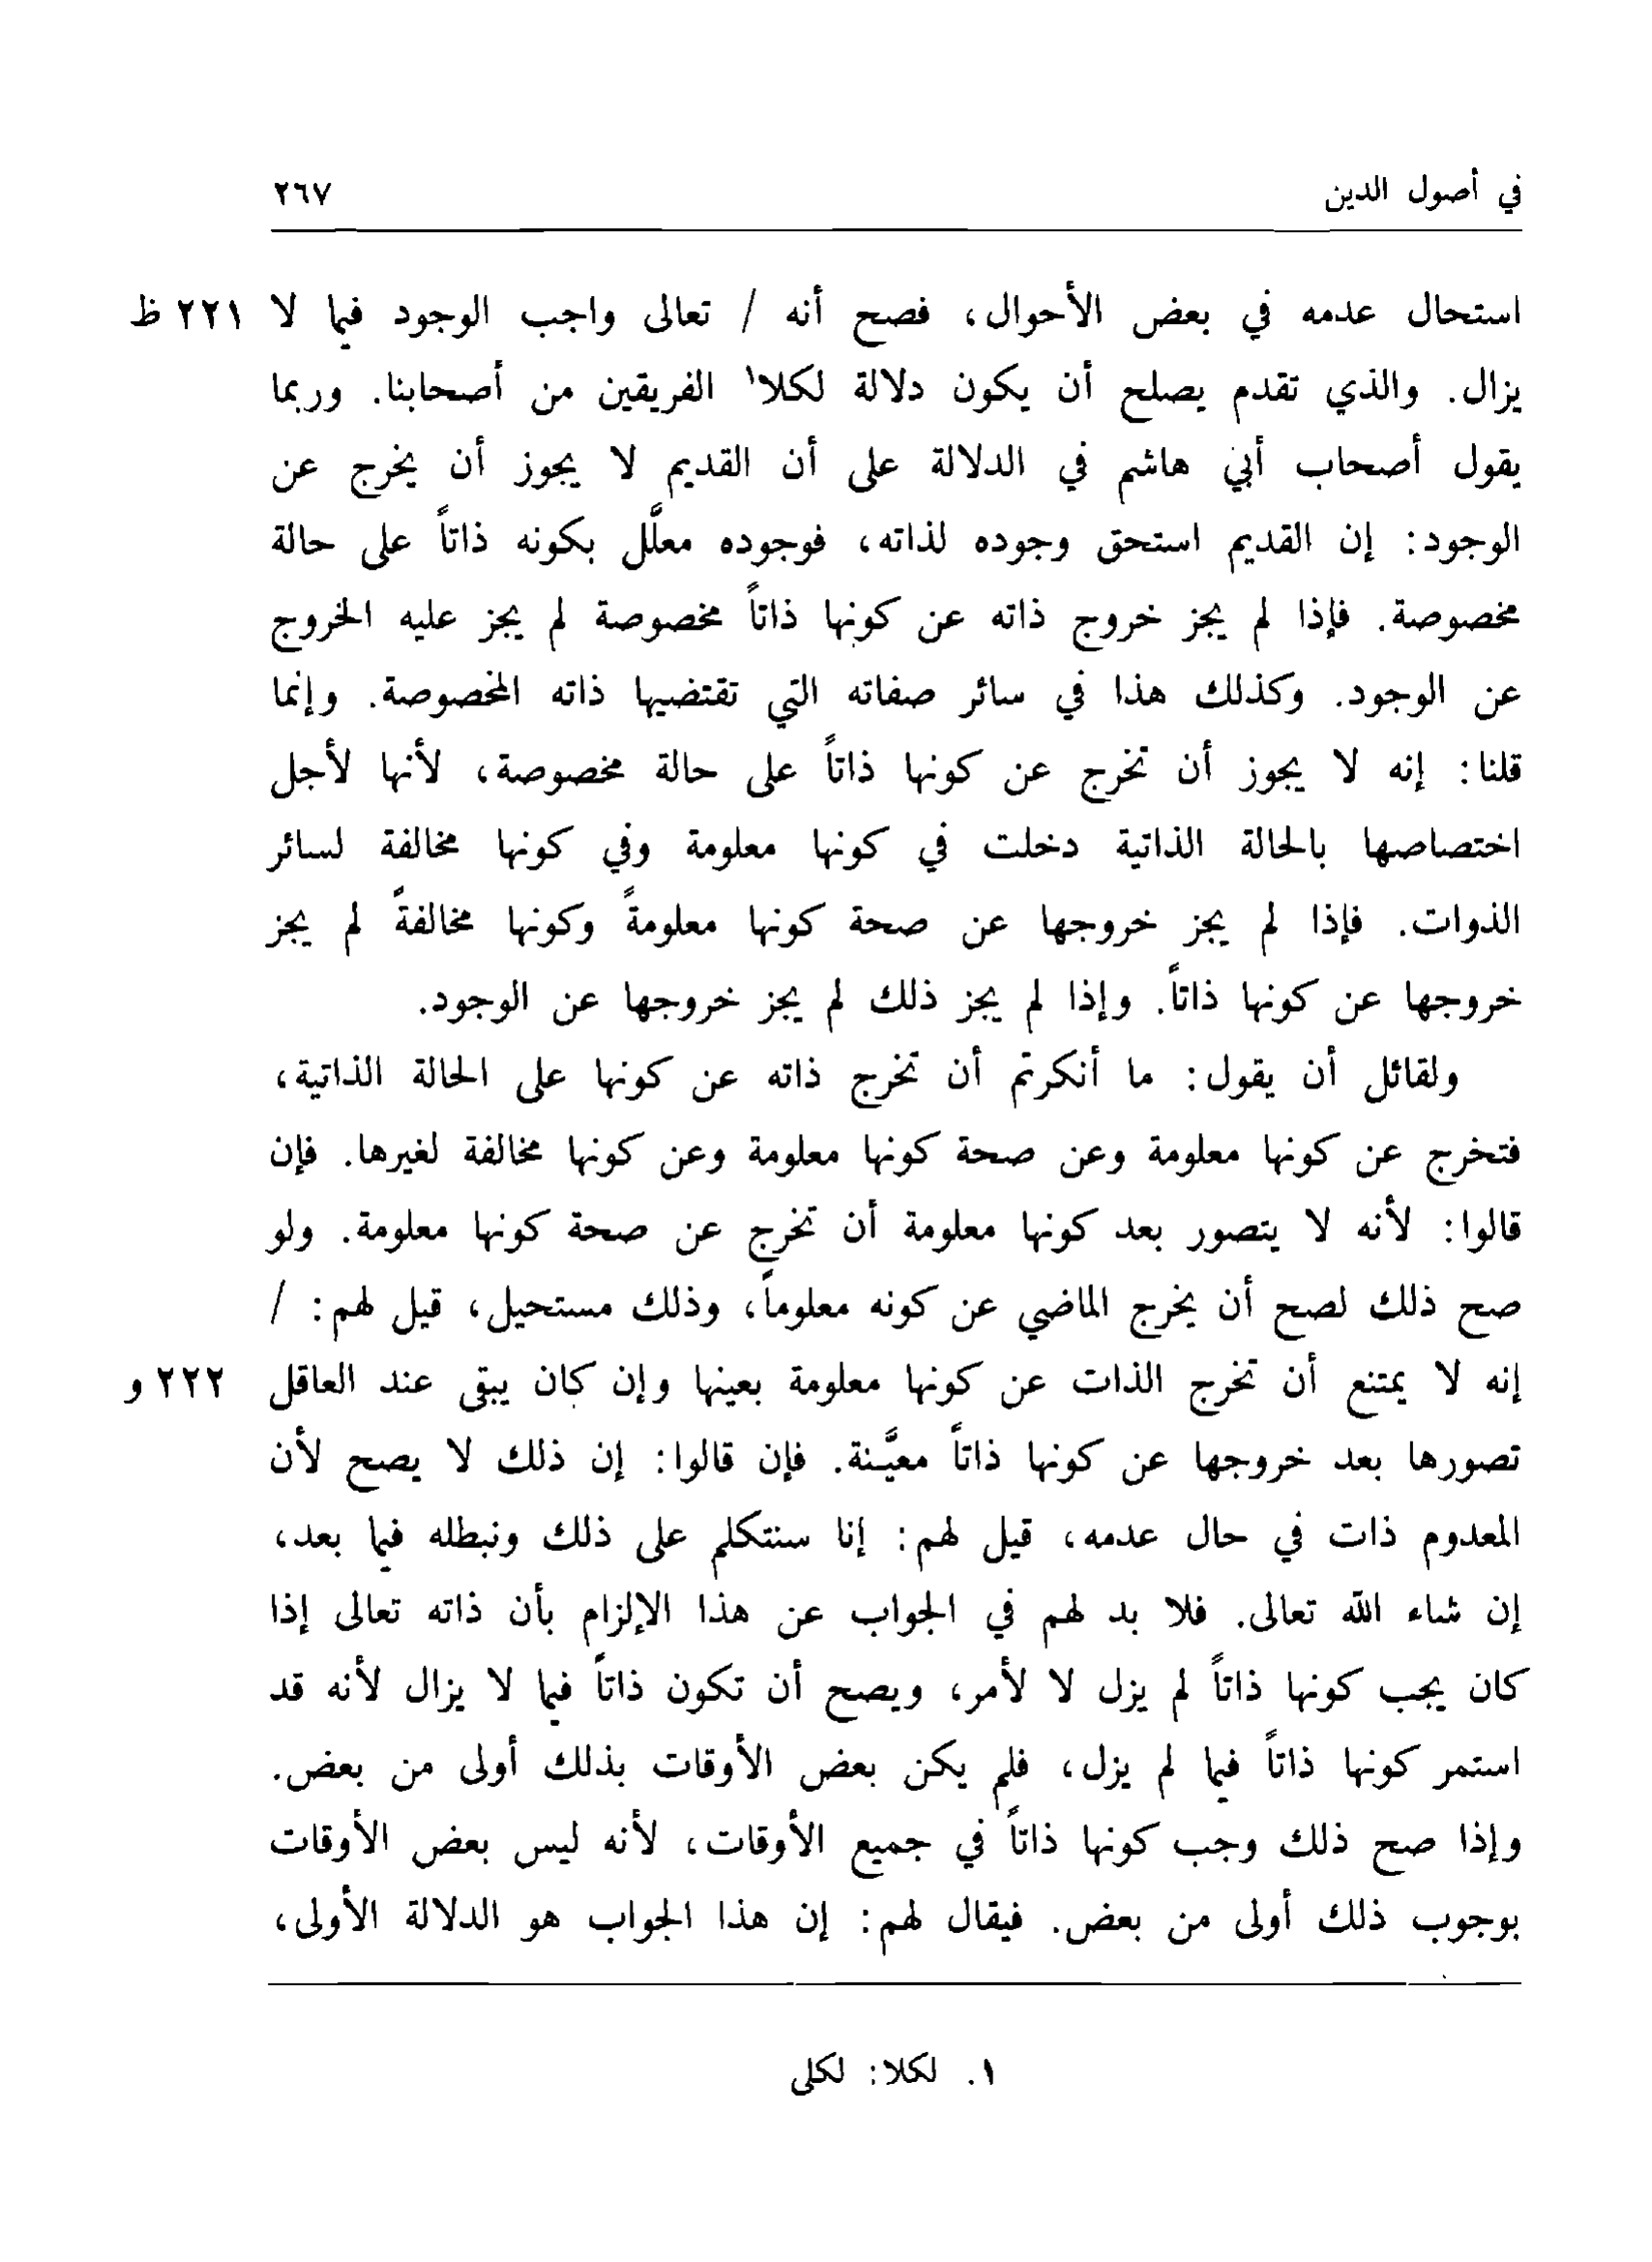 في أصول الدين ٢٦٧
استحال عدمه في بعض الأحوال، فصح أنه / تعالى واجب الوجود فيما لا ٢٢١ ظ
يزال. والذي تقدم يصلح أن يكون دلالة لكلا١ الفريقين من أصحابنا. وربما
يقول أصحاب أبي هاشم في الدلالة على أن القديم لا يجوز أن يخرج عن
الوجود: إن القديم استحق وجوده لذاته، فوجوده معلَّل بكونه ذاتاً على حالة
مخصوصة. فإذا لم يجز خروج ذاته عن كونها ذاتاً مخصوصة لم يجز عليه الخروج
عن الوجود. وكذلك هذا في سائر صفاته التي تقتضيها ذاته المخصوصة. وإنما
قلنا: إنه لا يجوز أن تخرج عن كونها ذاتاً على حالة مخصوصة، لأنها لأجل
اختصاصها بالحالة الذاتية دخلت في كونها معلومة وفي كونها مخالفة لسائر
الذوات. فإذا لم يجز خروجها عن صحة كونها معلومةً وكونها مخالفةً لم يجز
خروجها عن كونها ذاتاً. وإذا لم يجز ذلك لم يجز خروجها عن الوجود.
ولقائل أن يقول: ما أنكرتم أن تخرج ذاته عن كونها على الحالة الذاتية،
فتخرج عن كونها معلومة وعن صحة كونها معلومة وعن كونها مخالفة لغيرها. فإن
قالوا: لأنه لا يتصور بعد كونها معلومة أن تخرج عن صحة كونها معلومة. ولو
صح ذلك لصح أن يخرج الماضي عن كونه معلوماً، وذلك مستحيل، قيل لهم: /
إنه لا يمتنع أن تخرج الذات عن كونها معلومة بعينها وإن كان يبقى عند العاقل ٢٢٢ و
تصورها بعد خروجها عن كونها ذاتاً معيَّنة. فإن قالوا: إن ذلك لا يصح لأن
المعدوم ذات في حال عدمه، قيل لهم: إنا سنتكلم على ذلك ونبطله فيما بعد،
إن شاء الله تعالى. فلا بد لهم في الجواب عن هذا الإلزام بأن ذاته تعالى إذا
كان يجب كونها ذاتاً لم يزل لا لأمر، ويصح أن تكون ذاتاً فيما لا يزال لأنه قد
استمر كونها ذاتاً فيما لم يزل، فلم يكن بعض الأوقات بذلك أولى من بعض.
وإذا صح ذلك وجب كونها ذاتاً في جميع الأوقات، لأنه ليس بعض الأوقات
بوجوب ذلك أولى من بعض. فيقال لهم: إن هذا الجواب هو الدلالة الأولى،
١. لكلا: لكلى